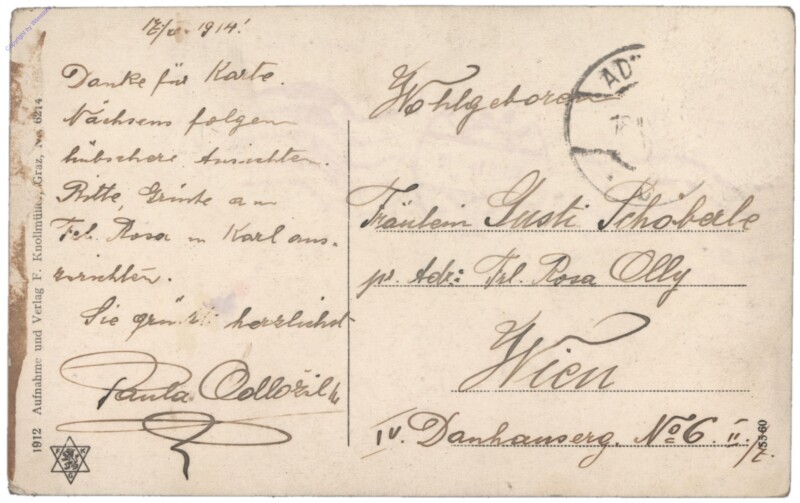 1914!
Danke für Karte.
Nächsens folgen
hübschere Ansichten.
Bitte, Grüße an
Frl. Rosa u Karl aus-
zurichten.
Sie grüßt herzlichst
Paula
Wohlgeboren
Fräulein Gusti Schoberle
pr. Adr: Frl. Rosa Olly
Wien
IV. Danhauserg. No 6 II.
1912 Aufnahme und Verlag F. Knollmüller, Graz, No. 6214
Copyright by
AD
5560